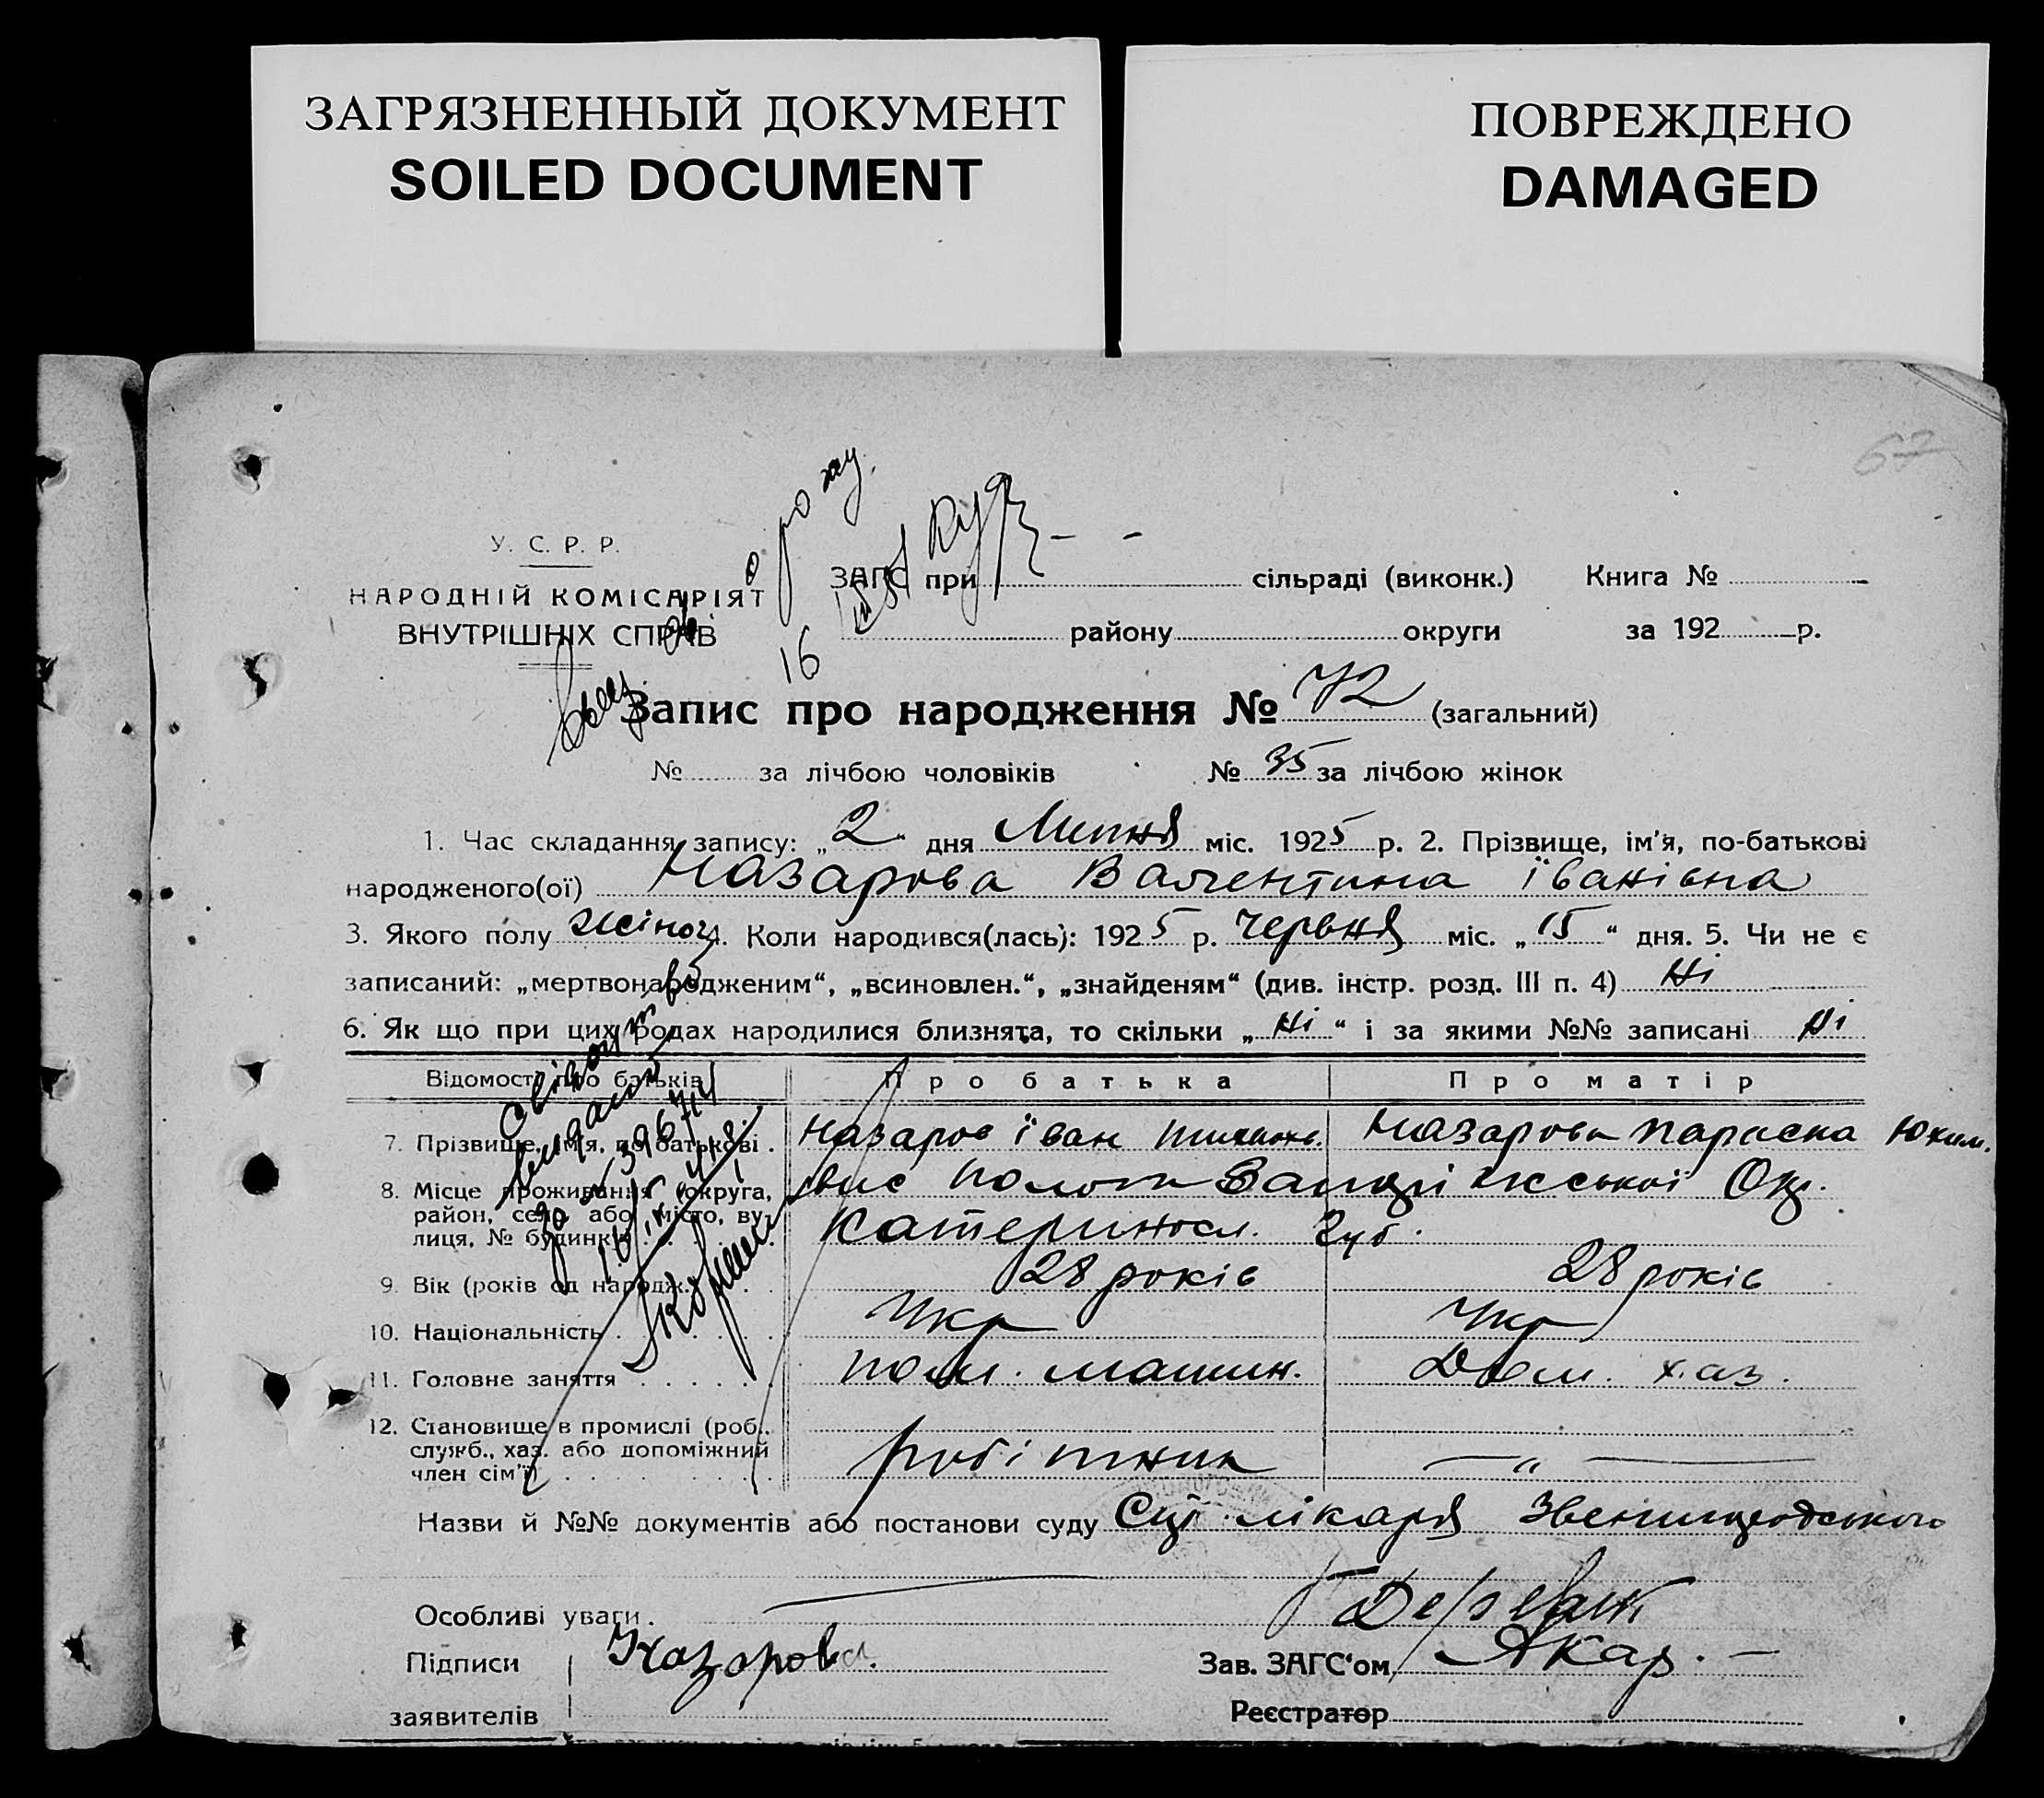 ЗАГРЯЗНЕННЫЙ ДОКУМЕНТ
SOILED DOCUMENT
ПОВРЕЖДЕНО
DAMAGED
67
У. С. Р. Р.
НАРОДНІЙ КОМІСАРІЯТ
ВНУТРІШНІХ СПРАВ
ЗАГС при сільраді (виконк.) Книга №
району округи за 192 р.
16
Запис про народження № 72 (загальний)
№ за лічбою чоловіків № 35 за лічбою жінок
1. Час складання запису: „2“ дня Липня міс. 1925 р. 2. Прізвище, ім'я, по-батькові
народженого(ої) Назарова Валентина Іванівна
3. Якого полу жіноч 4. Коли народився(лась): 1925 р. Червня міс. „15“ дня. 5. Чи не є
записаний: „мертвонародженим“, „всиновлен.“, „знайденям“ (див. інстр. розд. III п. 4) Ні
6. Як що при цих родах народилися близнята, то скільки „Ні“ і за якими №№ записані Ні
Відомості про батьків Про батька Про матір
7. Прізвище, ім'я, по батькові Назаров Іван Назарова Параска Юхим.
8. Місце проживання (округа,
район, село або місто, ву-
лиця, № будинку) Катериносл. Губ.
9. Вік (років од народж.) 28 років 28 років
10. Національність Укр Укр
11. Головне заняття пом. машин. Дом. хаз.
12. Становище в промислі (роб.,
служб., хаз. або допоміжний
член сім'ї) робітник — „ —
Назви й №№ документів або постанови суду лікаря
Особливі уваги
Підписи Назаров
Зав. ЗАГС'ом
заявителів Реєстратор